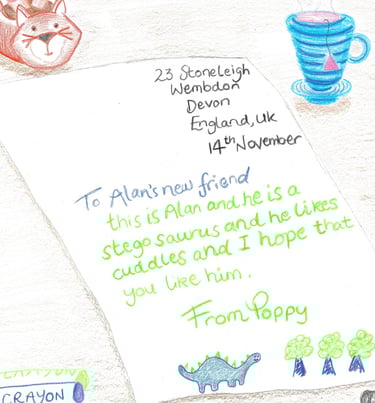 23 Stoneleigh
Wembdon
Devon
England, UK
14th November
To Alan's new friend
this is Alan and he is a
stegosaurus and he likes
cuddles and I hope that
you like him.
From Poppy
CRAYON
CRAYON